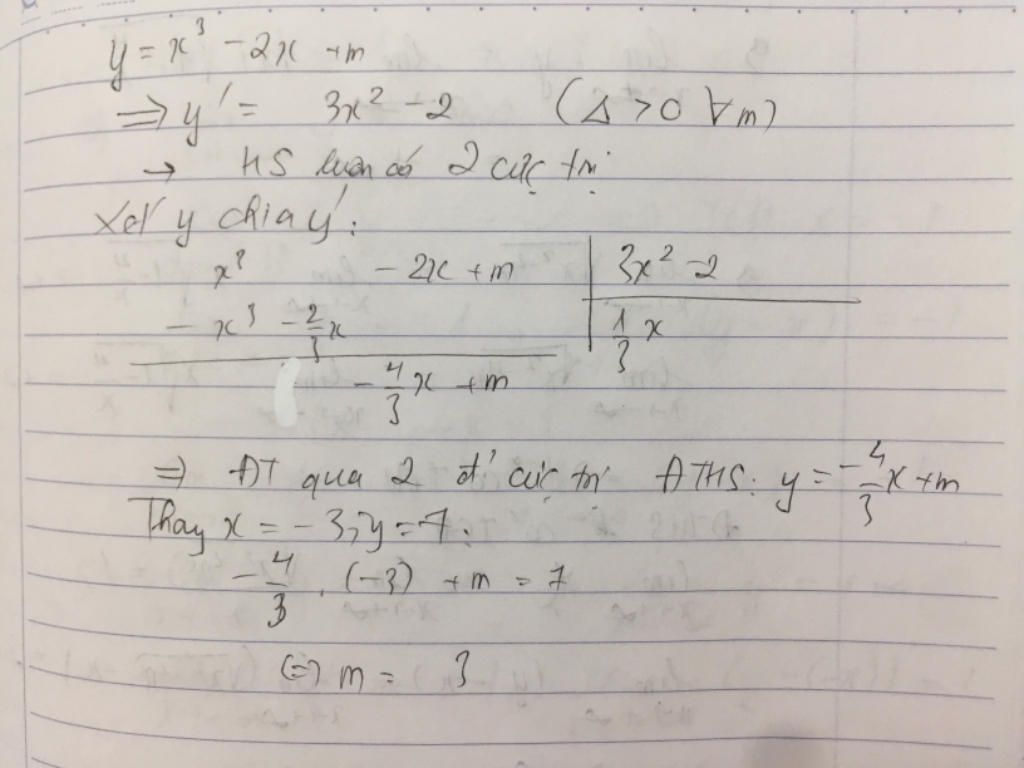 y = x³ - 2x + m
⟹ y' = 3x² - 2 (Δ > 0 ∀m)
→ HS luôn có 2 cực trị
Xét y chia y':
x³ - 2x + m | 3x² - 2
- x³ - 2/3 x | 1/3 x
- 4/3 x + m
⇒ ĐT qua 2 đ' cực trị ĐTHS: y = -4/3 x + m
Thay x = -3, y = 7:
-4/3 . (-3) + m = 7
⇔ m = 3